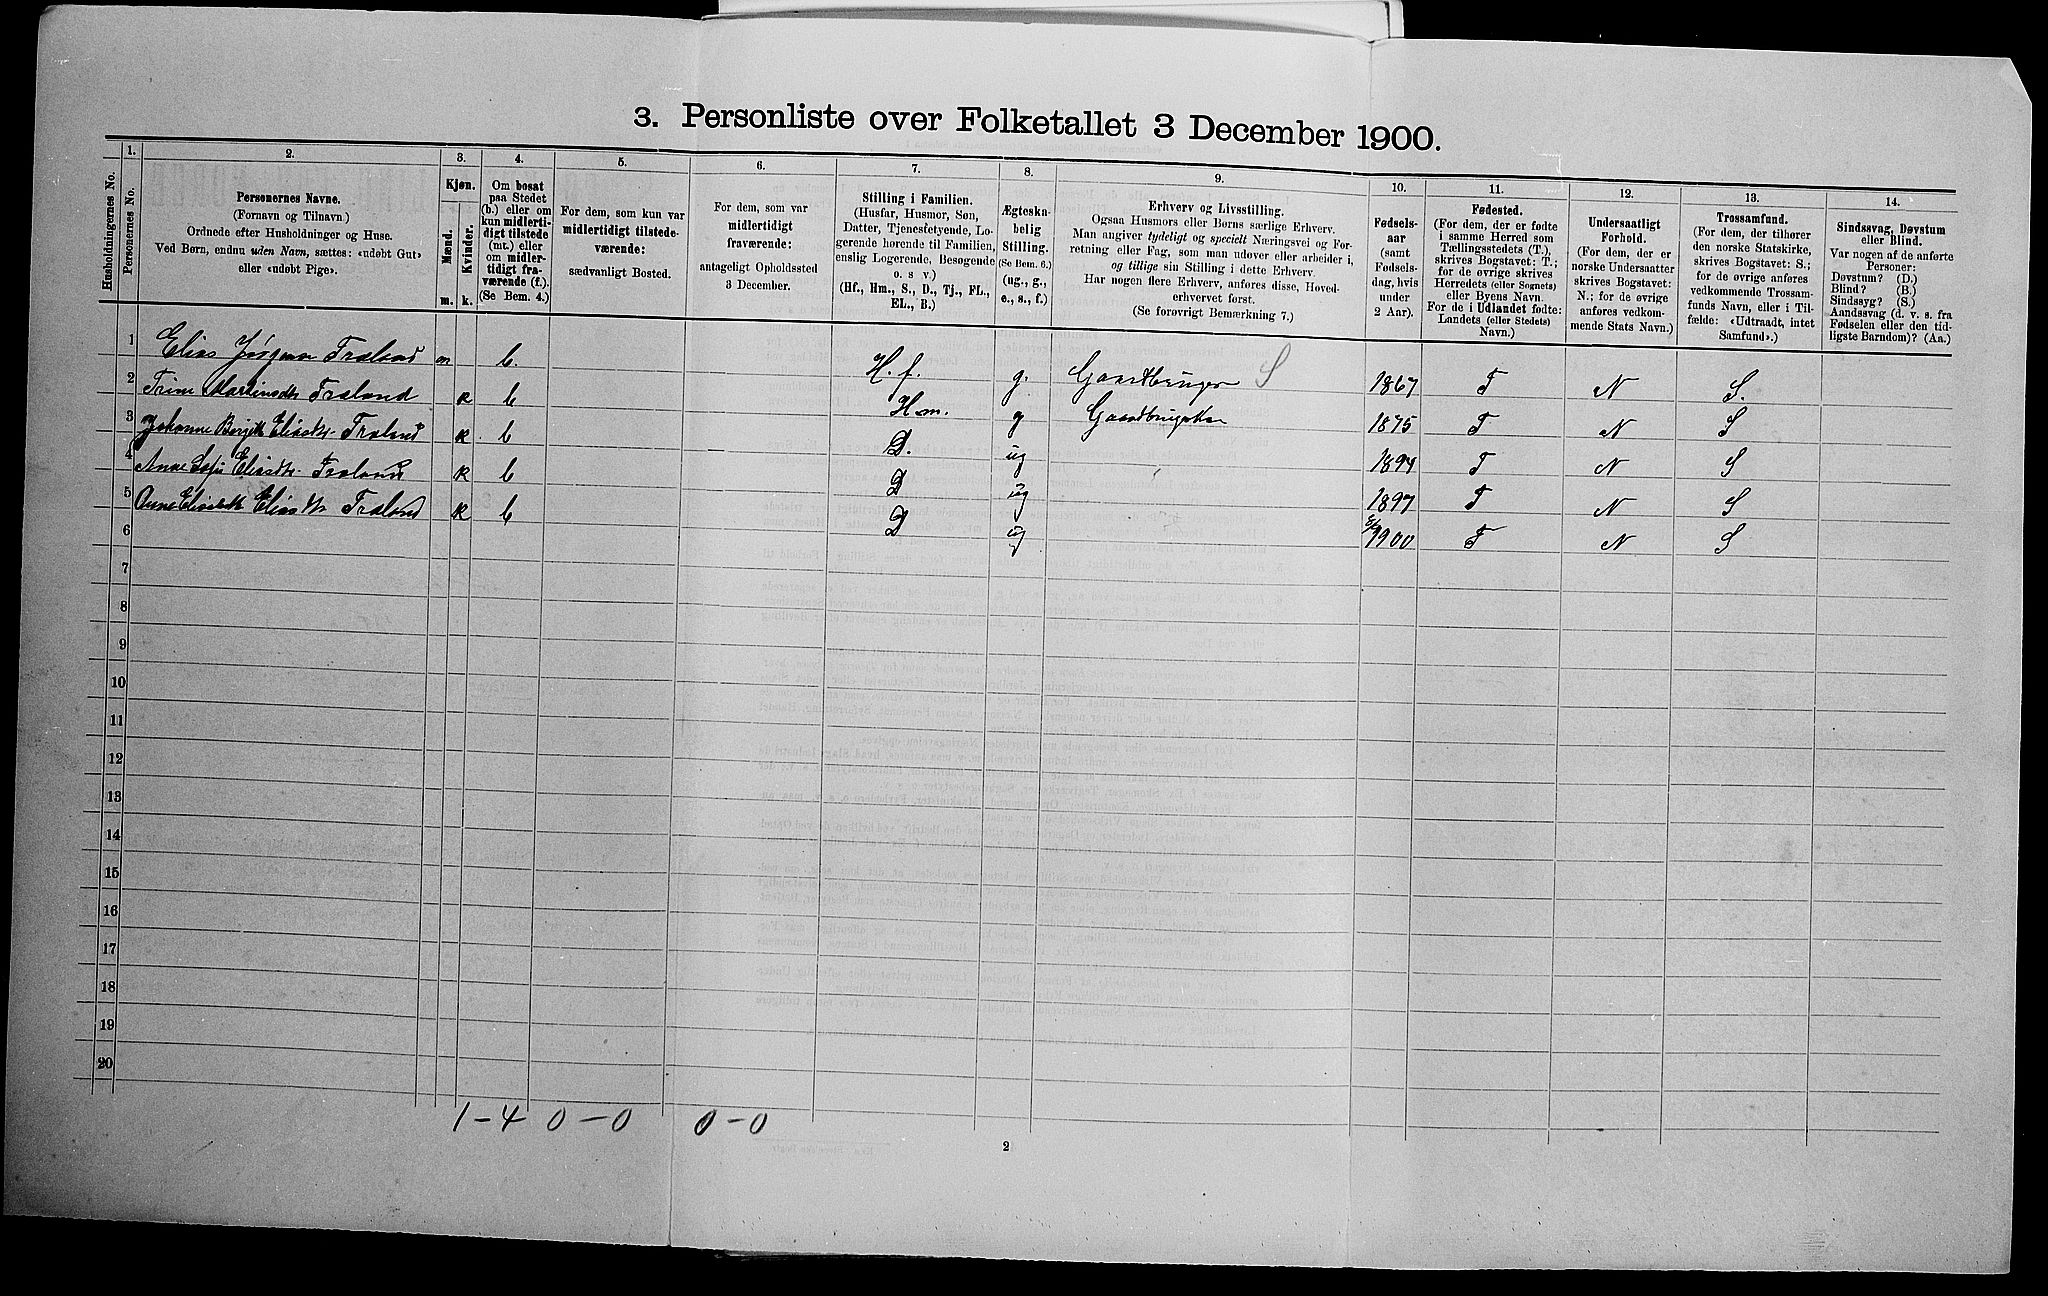 3. Personliste over Folketallet 3 December 1900.
1. 2. 3. 4. 5. 6. 7. 8. 9. 10. 11. 12. 13. 14.
Husholdningernes No.
Personernes No.
Personernes Navne.
(Fornavn og Tilnavn.)
Ordnede efter Husholdninger og Huse.
Ved Børn, endnu uden Navn, sættes: «udøbt Gut»
eller «udøbt Pige».
Kjøn.
Mænd.
Kvinder.
m. k.
Om bosat
paa Stedet
(b.) eller om
kun midlerti-
digt tilstede
(mt.) eller
om midler-
tidigt fra-
værende (f.).
(Se Bem. 4.)
For dem, som kun var
midlertidigt tilstede-
værende:
sædvanligt Bosted.
For dem, som var
midlertidigt
fraværende:
antageligt Opholdssted
3 December.
Stilling i Familien.
(Husfar, Husmor, Søn,
Datter, Tjenestetyende, Lo-
gerende hørende til Familien,
enslig Logerende, Besøgende
o. s v.)
(Hf., Hm., S., D., Tj., FL.,
EL., B.)
Ægteska-
belig
Stilling.
(Se Bem. 6.)
(ug., g.,
e., s., f.)
Erhverv og Livsstilling.
Ogsaa Husmors eller Børns særlige Erhverv.
Man angiver tydeligt og specielt Næringsvei og For-
retning eller Fag, som man udøver eller arbeider i,
og tillige sin Stilling i dette Erhverv.
Har nogen flere Erhverv, anføres disse, Hoved-
erhvervet først.
(Se forøvrigt Bemærkning 7.)
Fødsels-
aar
(samt
Fødsels-
dag, hvis
under
2 Aar).
Fødested.
(For dem, der er fødte
i samme Herred som
Tællingsstedets (T.),
skrives Bogstavet: T.;
for de øvrige skrives
Herredets (eller Sognets)
eller Byens Navn.
For de i Udlandet fødte:
Landets (eller Stedets)
Navn.)
Undersaatligt
Forhold.
(For dem, der er
norske Undersaatter
skrives Bogstavet:
N.; for de øvrige
anføres vedkom-
mende Stats Navn.)
Trossamfund.
(For dem, der tilhører
den norske Statskirke,
skrives Bogstavet: S.;
for de øvrige anføres
vedkommende Trossam-
funds Navn, eller i Til-
fælde: «Udtraadt, intet
Samfund».)
Sindssvag, Døvstum
eller Blind.
Var nogen af de anførte
Personer:
Døvstum? (D.)
Blind? (B.)
Sindssyg? (S.)
Aandssvag (d. v. s. fra
Fødselen eller den tid-
ligste Barndom)? (Aa.)
1 Elias Jørgensen Fraland m b. H. f. g. Gaardbruger S 1867 T N S.
2 Trine Martinsdtr Fraland k b H m. g Gaardbrugerske 1875 T N S
3 Johanne Bergit Eliasdtr. Fraland k. b D. ug 1894 T N S
4 Anne Sofie Eliasdtr. Fraland k b D ug 1897 T N S
5 Anne Elisabeth Eliasdtr Fraland k b D ug 1900 T N S
6
7
8
9
10
11
12
13
14
15
16
17
18
19
20
1 – 4 0 – 0 0 – 0
2